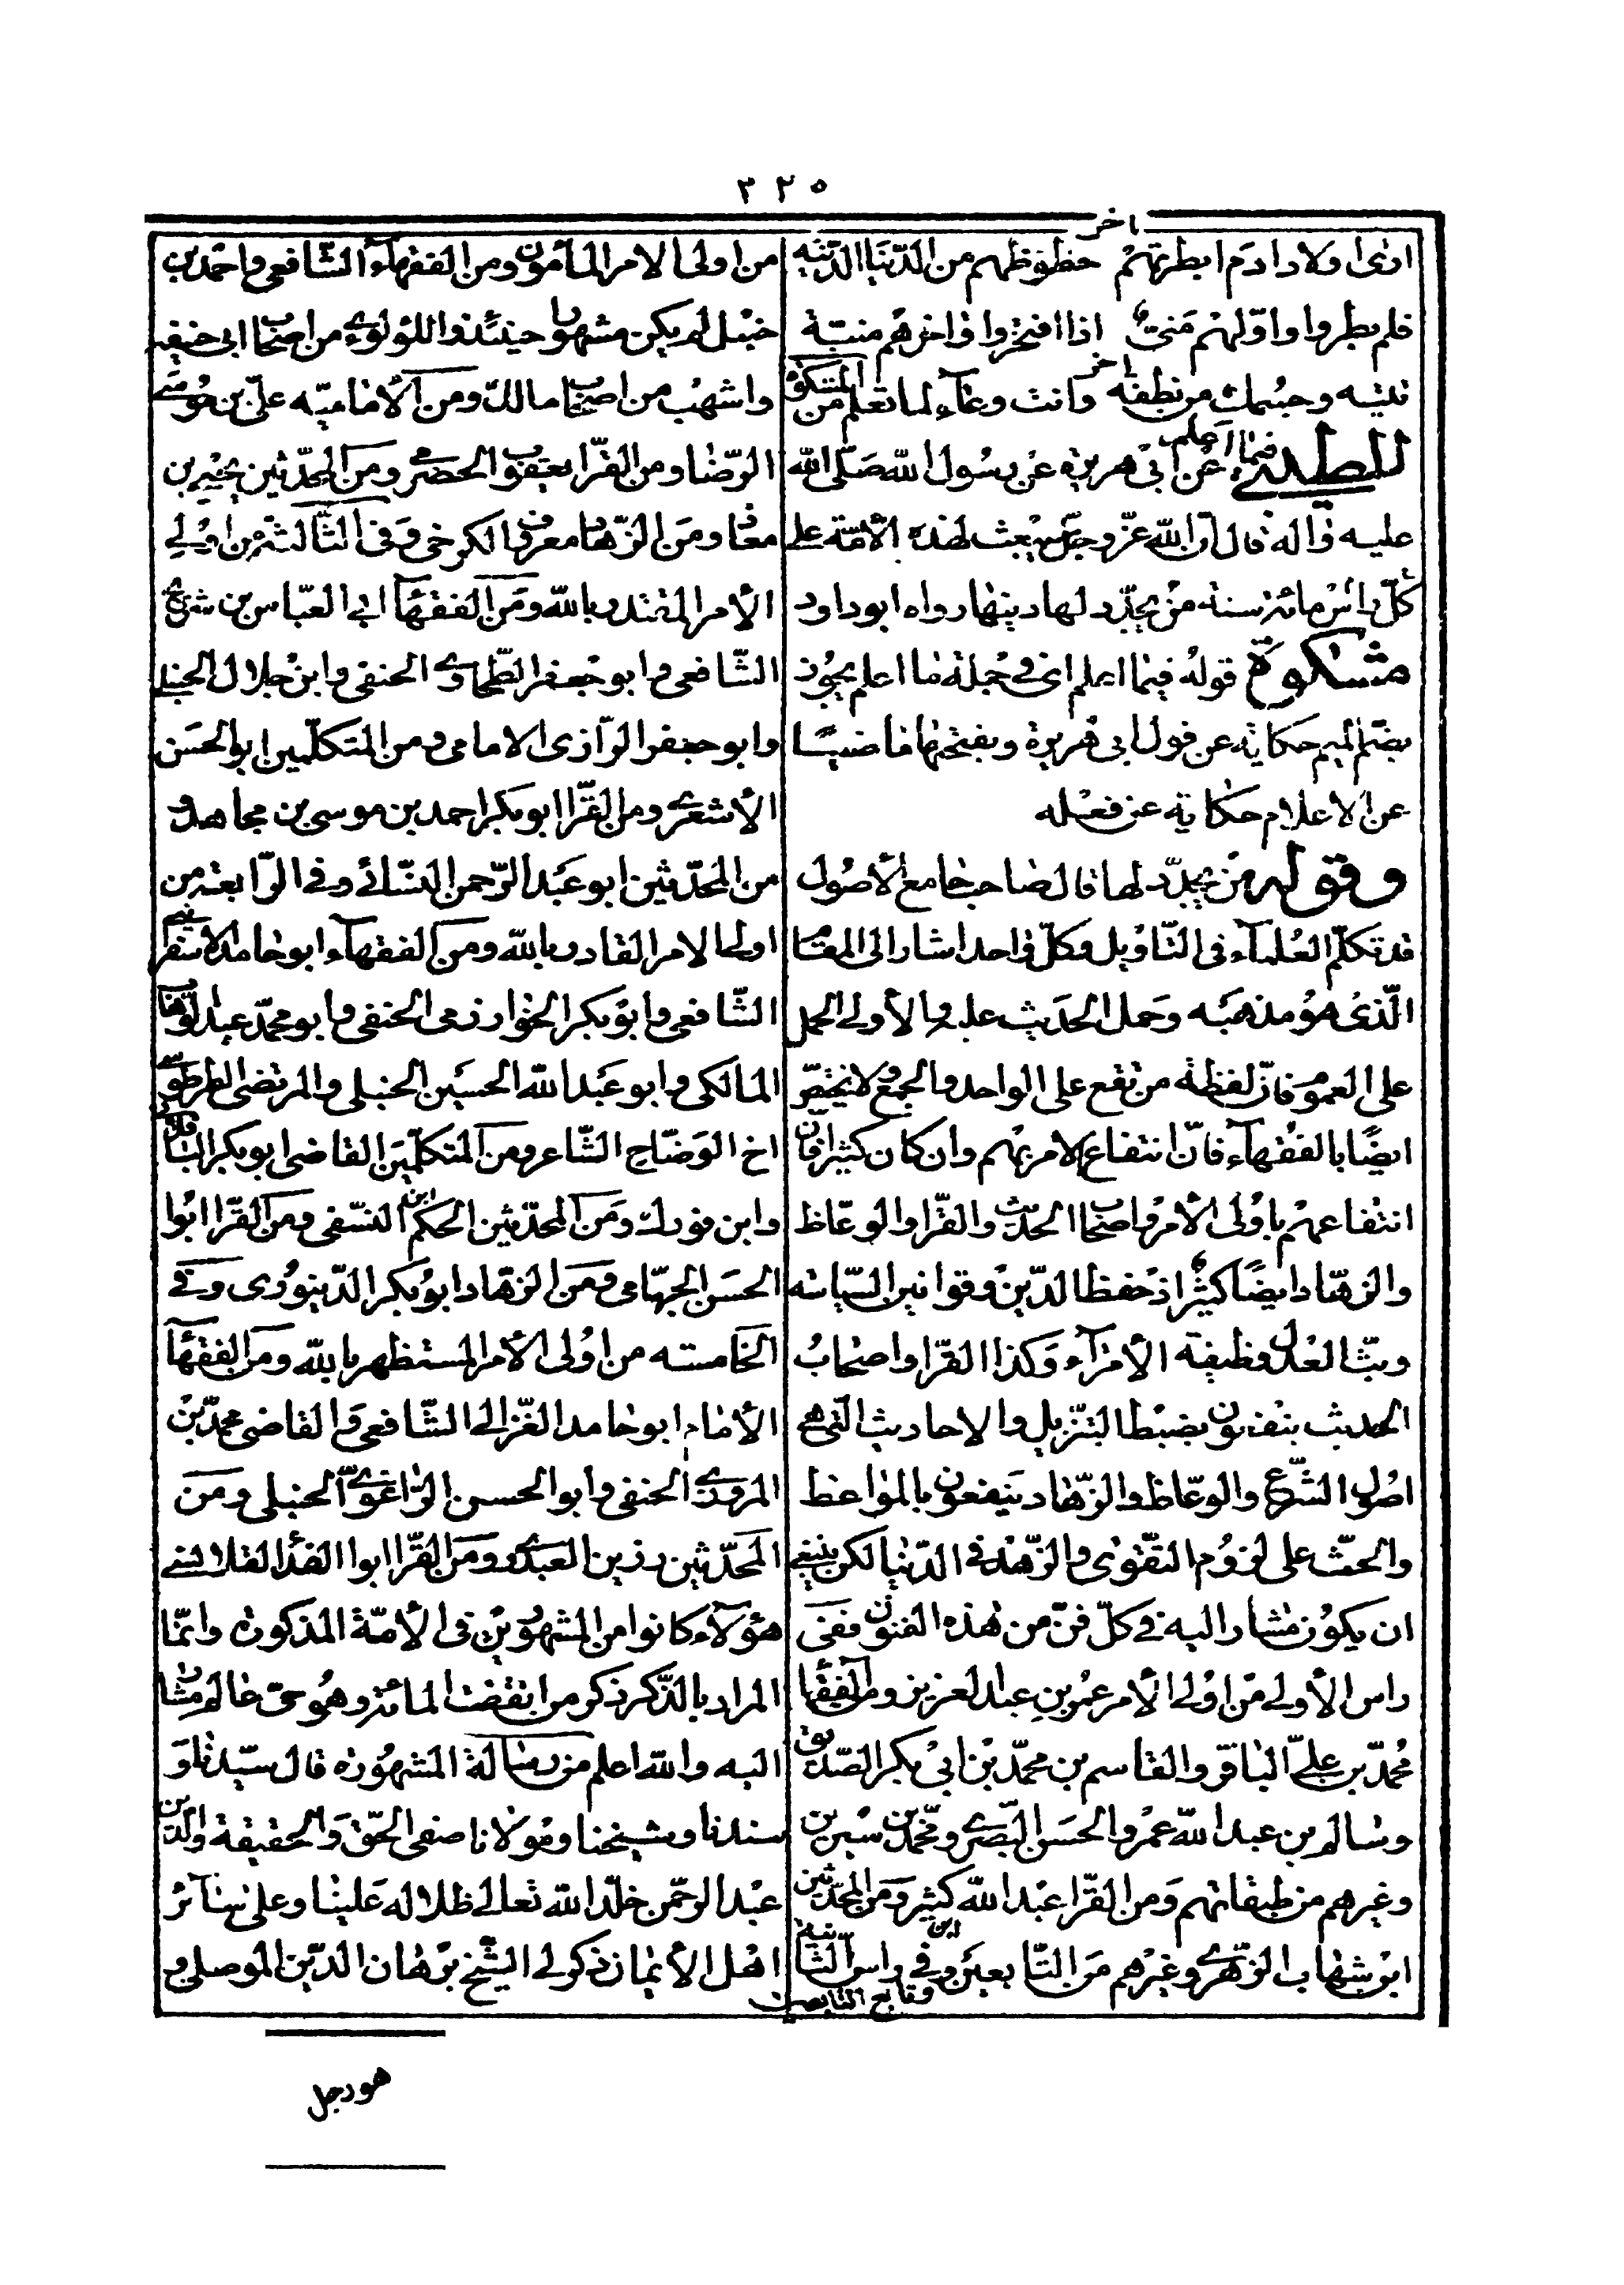 ٣٢٥
اخر
ارى اولاد ادم ابطرتهم حظوظهم من الدنيا الدنيه
فلم بطروا واولهم منى اذا افتخروا واخرهم منية
اخر
تتيه وجسمك من نطفه وانت وعاء لما تعلم من المشكوة
للطيبى فيما اعلم عن ابى هريره عن رسول الله صلى الله
عليه واله قال ان الله عز وجل يبعث لهذه الأمة على
كل راس مائة سنة من يجدد لها دينها رواه ابوداود
مشكوة قوله فيما اعلم اى فى جملة ما اعلم يجوز
بضم الميم حكاية عن قول ابى هريرة وبفتحها ماضيا
عن الاعلام حكاية عن فعله
وقوله من يجدد لها قال صاحب جامع الأصول
قد تكلم العلماء فى التاويل وكل واحد اشار الى المقام
الذى هو مذهبه وحمل الحديث عليه والأولى الحمل
على العموم فان لفظة من تقع على الواحد والجمع ولا يختص
ايضا بالفقهاء فان انتفاع الامر بهم وان كان كثيرا فان
انتفاعهم باولى الأمر واصحاب الحديث والقرا والوعاظ
والزهاد ايضا كثير اذ حفظ الدين وقوانين السياسه
وبث العدل وظيفة الأمراء وكذا القرا واصحاب
الحديث ينفعون بضبط التنزيل والاحاديث التى هى
اصول الشرع والوعاظ والزهاد ينفعون بالمواعظ
والحث على لزوم التقوى والزهد فى الدنيا لكن ينبغى
ان يكون مشارا اليه فى كل فن من هذه الفنون ففى
راس الأولى من اولى الأمر عمر بن عبد العزيز ومن الفقها
محمد بن على الباقر والقاسم بن محمد بن ابى بكر الصديق
وسالم بن عبد الله عمر والحسن البصرى ومحمد بن سيرين
وغيرهم من طبقاتهم ومن القرا عبد الله كثير ومن المحدثين
ابن شهاب الزهرى وغيرهم من التابعين وفى راس الثانية
من اولى الامر المأمون ومن الفقهاء الشافعى واحمد بن
حنبل لم يكن مشهورا حينئذ واللؤلوى من اصحاب ابى حنيفه
واشهب من اصحاب مالك ومن الأماميه على بن موسى
الرضا ومن القرا يعقوب الحضرمى ومن المحدثين يحيى بن
معاذ ومن الزهاد معروف الكرخى وفى الثالثة من اولى
الأمر المقتدر بالله ومن الفقهاء ابى العباس بن شريح
الشافعى وابو جعفر الطحاوى الحنفى وابن جلال الحنبلى
وابو جعفر الرازى الامامى ومن المتكلمين ابو الحسن
الأشعرى ومن القرا ابو بكر احمد بن موسى بن مجاهد و
من المحدثين ابو عبد الرحمن النسائى وفى الرابعة من
اولى الامر القادر بالله ومن الفقهاء ابو حامد الاسفراينى
الشافعى وابو بكر الخوارزمى الحنفى وابو محمد عبد الوهاب
المالكى وابو عبد الله الحسين الحنبلى والمرتضى الطرطوسى
اخ الوضاح الشاعر ومن المتكلمين القاضى ابو بكر الباقلانى
وابن فورك ومن المحدثين الحكم ابن النسفى ومن القرا ابوا
الحسن الجهامى ومن الزهاد ابو بكر الدينورى وفى
الخامسه من اولى الأمر المستظهر بالله ومن الفقهاء
الأمام ابو حامد الغزالى الشافعى والقاضى محمد بن
المروزى الحنفى وابو الحسن الراغوى الحنبلى ومن
المحدثين رزين العبدرى ومن القرا ابوا الفدا القلانسى
هؤلاء كانوا من المشهورين فى الأمة المذكورة وانما
المراد بالذكر ذكر من انقضت المائة وهو حى عالم مشار
اليه والله اعلم من رسالة المشهورة قال سيدنا و
سندنا وشيخنا ومولانا صفى الحق والحقيقة والدين
عبد الرحمن خلد الله تعالى ظلاله علينا وعلى سائر
اهل الأيمان ذكر لى الشيخ برهان الدين الموصلى و
هو رجل